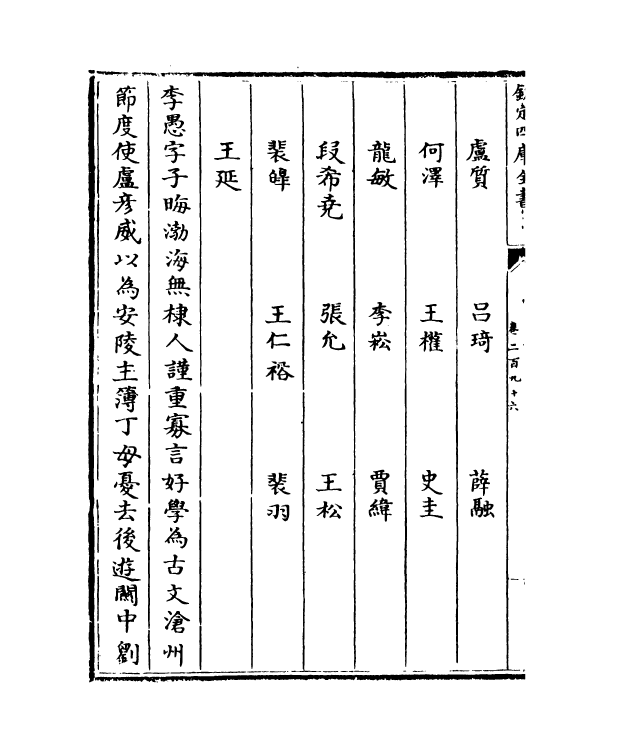 欽定四庫全書
卷二百九十六
盧質 呂琦 薛融
何澤 王權 史圭
龍敏 李崧 賈緯
段希堯 張允 王松
裴皥 王仁裕 裴羽
王延
李愚字子晦渤海無棣人謹重寡言好學為古文滄州
節度使盧彥威以為安陵主簿丁母憂去後遊關中劉